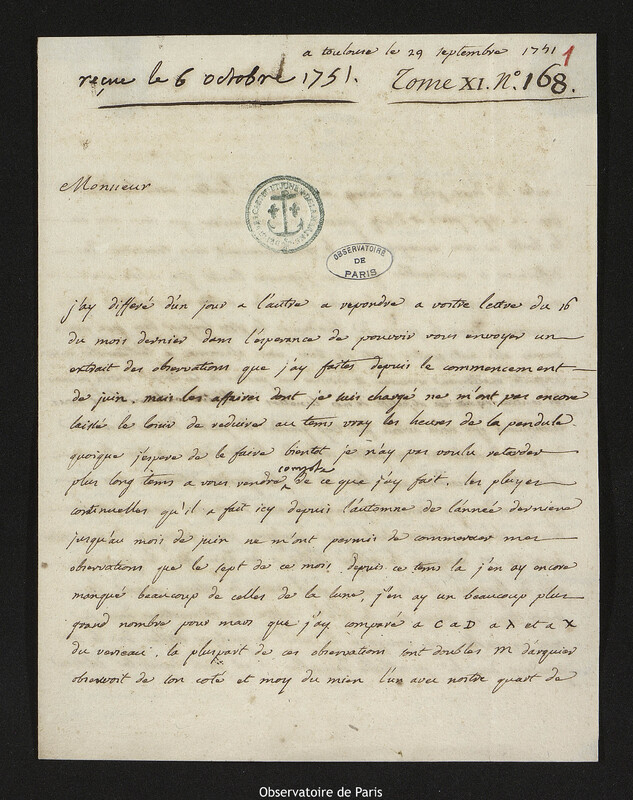 a toulouse le 29 septembre 1751
1
reçue le 6 octobre 1751. Tome XI. N.º 168.
Monsieur
OBSERVATOIRE
DE
PARIS
j'ay differé d'un jour a l'autre a repondre a vostre lettre du 16
du mois dernier dans l'esperance de pouvoir vous envoyer un
extrait des observations que j'ay faites depuis le commencement
de juin. mais les affaires dont je suis chargé ne m'ont pas encore
laissé le loisir de reduire au tems vray les heures de la pendule
quoique j'espere de le faire bientot je n'ay pas voulu retarder
plus long tems a vous rendre compte de ce que j'ay fait. les pluyes
continuelles qu'il a fait icy depuis l'automne de l'année derniere
jusqu'au mois de juin ne m'ont permis de commencer mes
observations que le sept de ce mois. depuis ce tems la j'en ay encore
manqué beaucoup de celles de la lune, j'en ay un beaucoup plus
grand nombre pour mars que j'ay comparé a C a D a λ et a χ
du verseau. la pluspart de ces observations sont doubles m d'arquier
observoit de son coté et moy du mien l'un avec nostre quart de
Observatoire de Paris